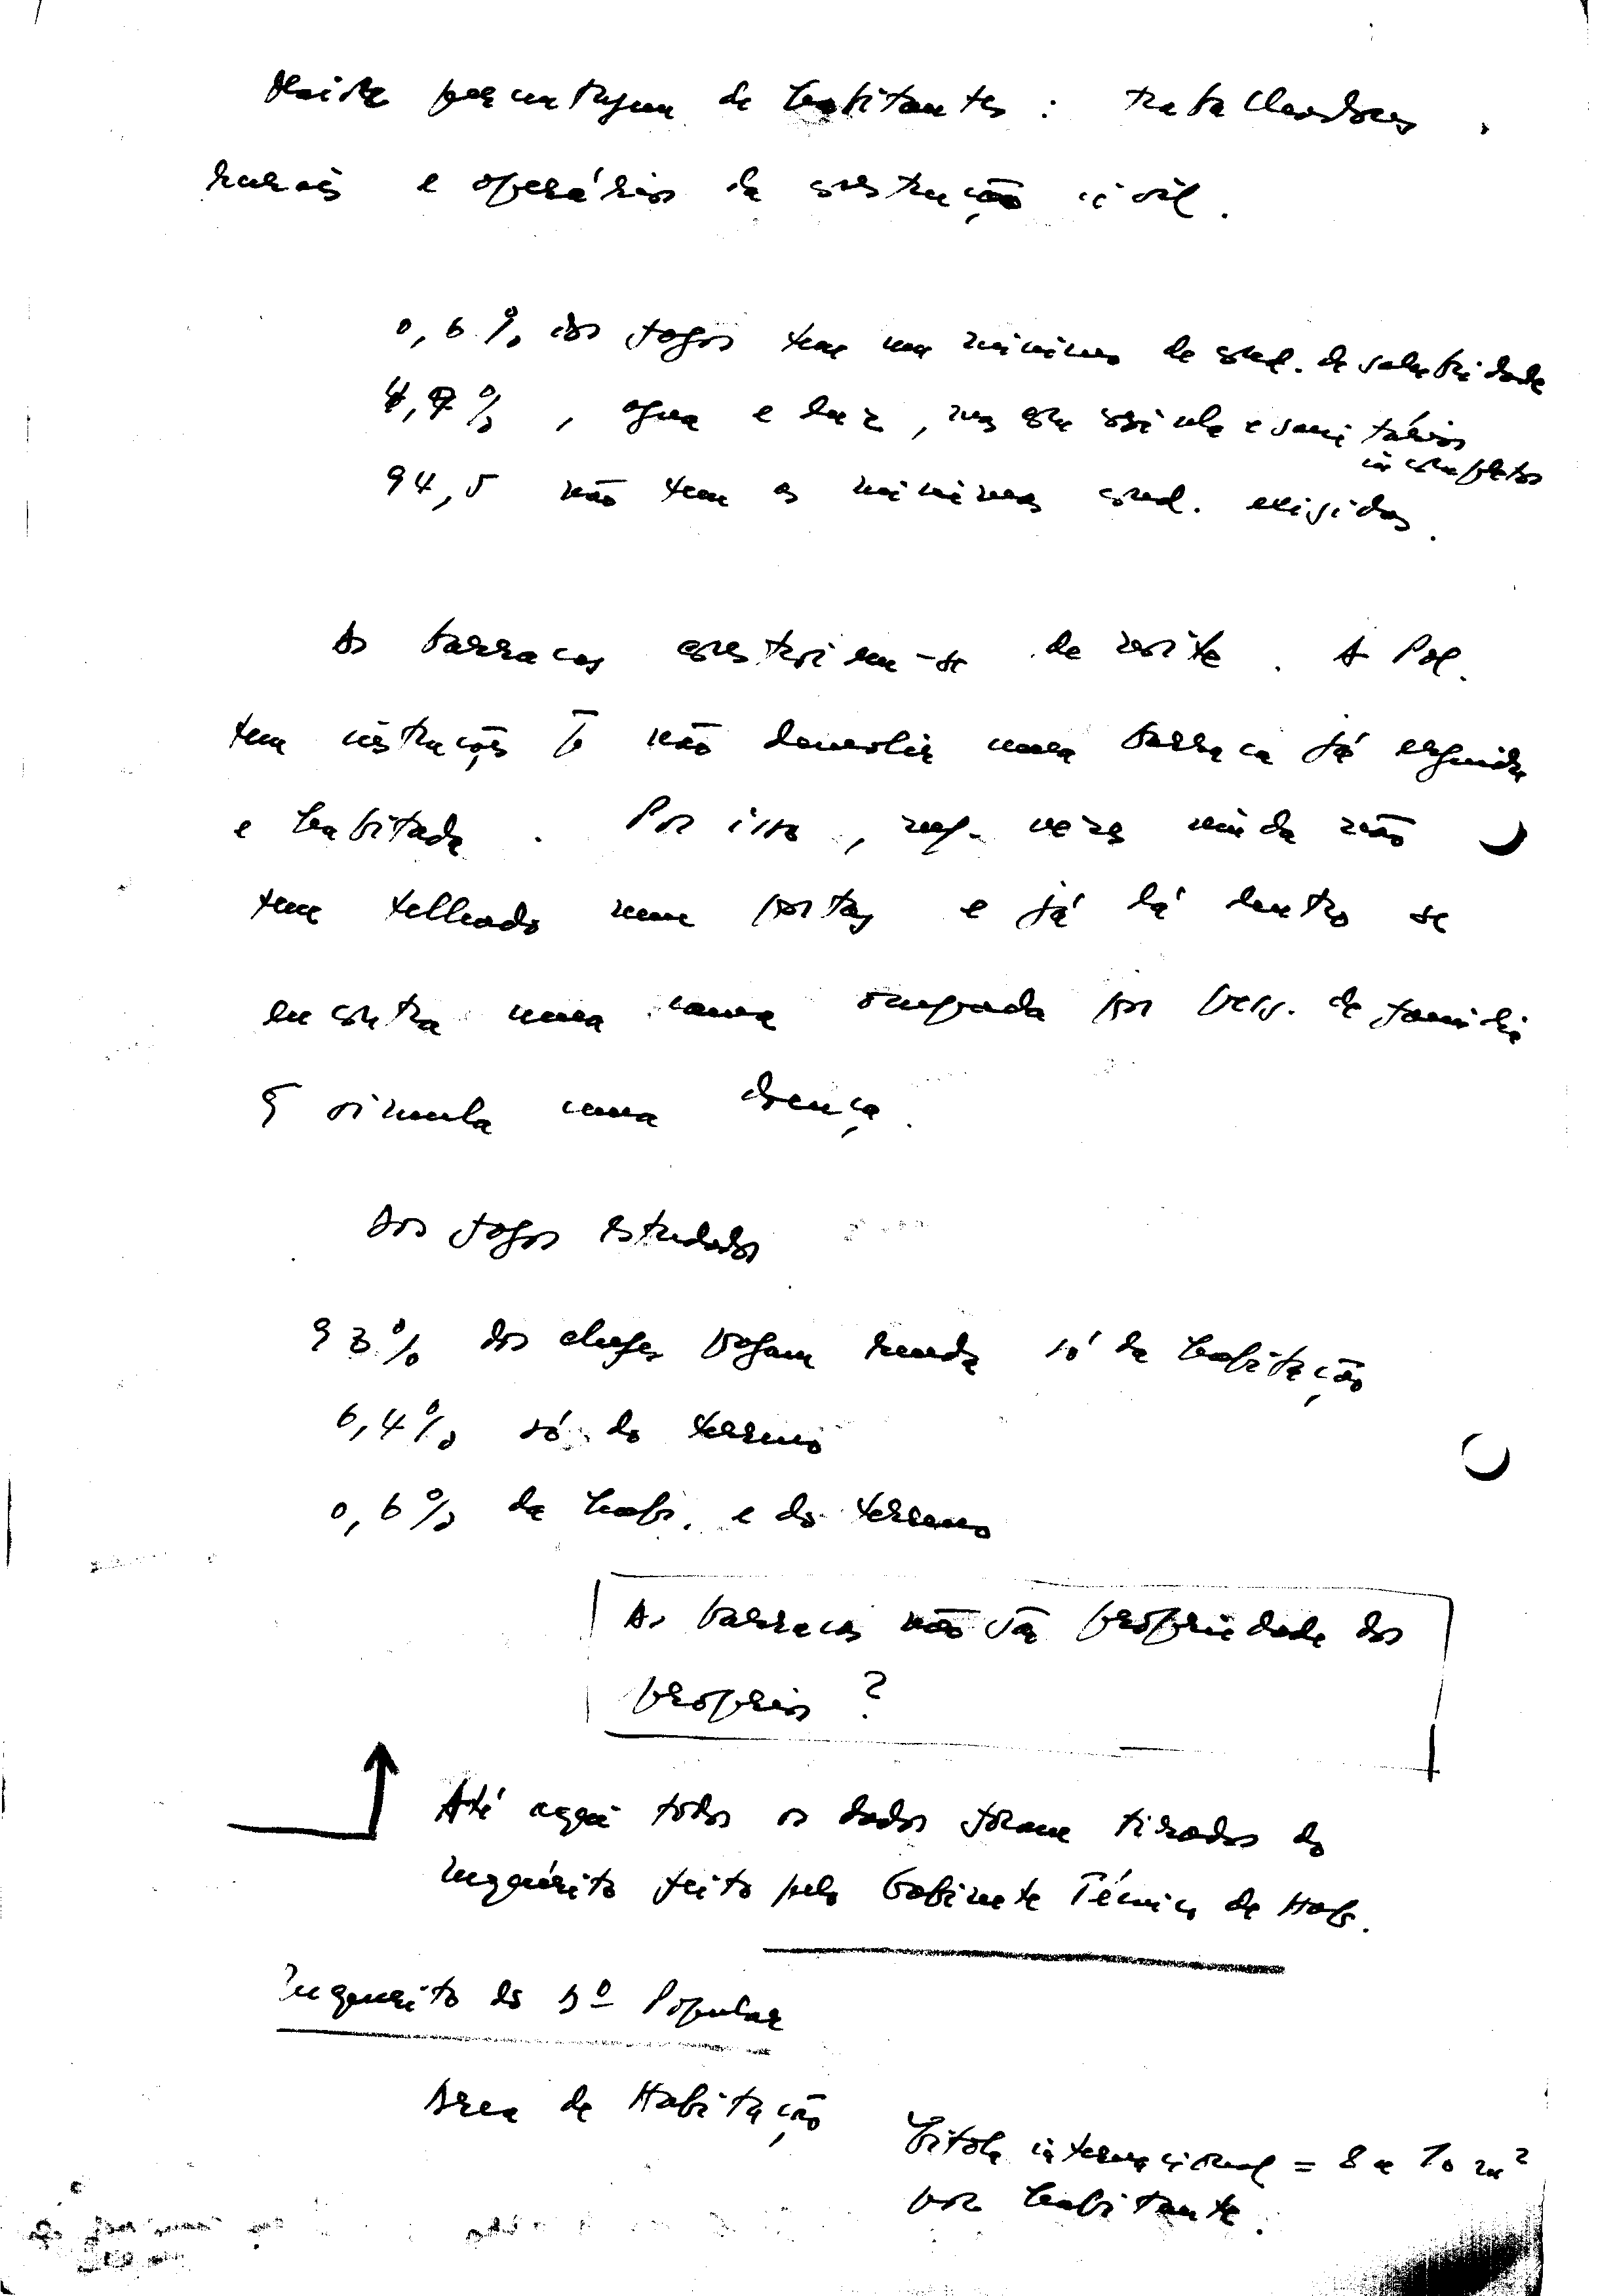 Maior percentagem de habitantes: trabalhadores
rurais e operários da construção civil.
0,6% dos fogos tem um mínimo de cond. de salubridade
4,9%, água e luz, mas com cozinha e sanitários
incompletos
94,5 não tem as mínimas cond. exigidas.
As barracas constroiem-se de noite. A Pol.
tem instruções p não demolir uma barraca já erguida
e habitada. Por isso, mts. vezes ainda não
tem telhado nem portas e já lá dentro se
encontra uma cama ocupada por pess. de família
q simula uma doença.
Dos fogos estudados
93% dos chefes pagam renda só da habitação
6,4% só do terreno
0,6% da hab. e do terreno
As barracas não são propriedade dos
próprios?
Até aqui todos os dados foram tirados do
Inquérito feito pelo Gabinete Técnico de Hab.
Inquérito do Dº Popular
Area de Habitação
Bitola internacional = 8 a 10 m²
por habitante.